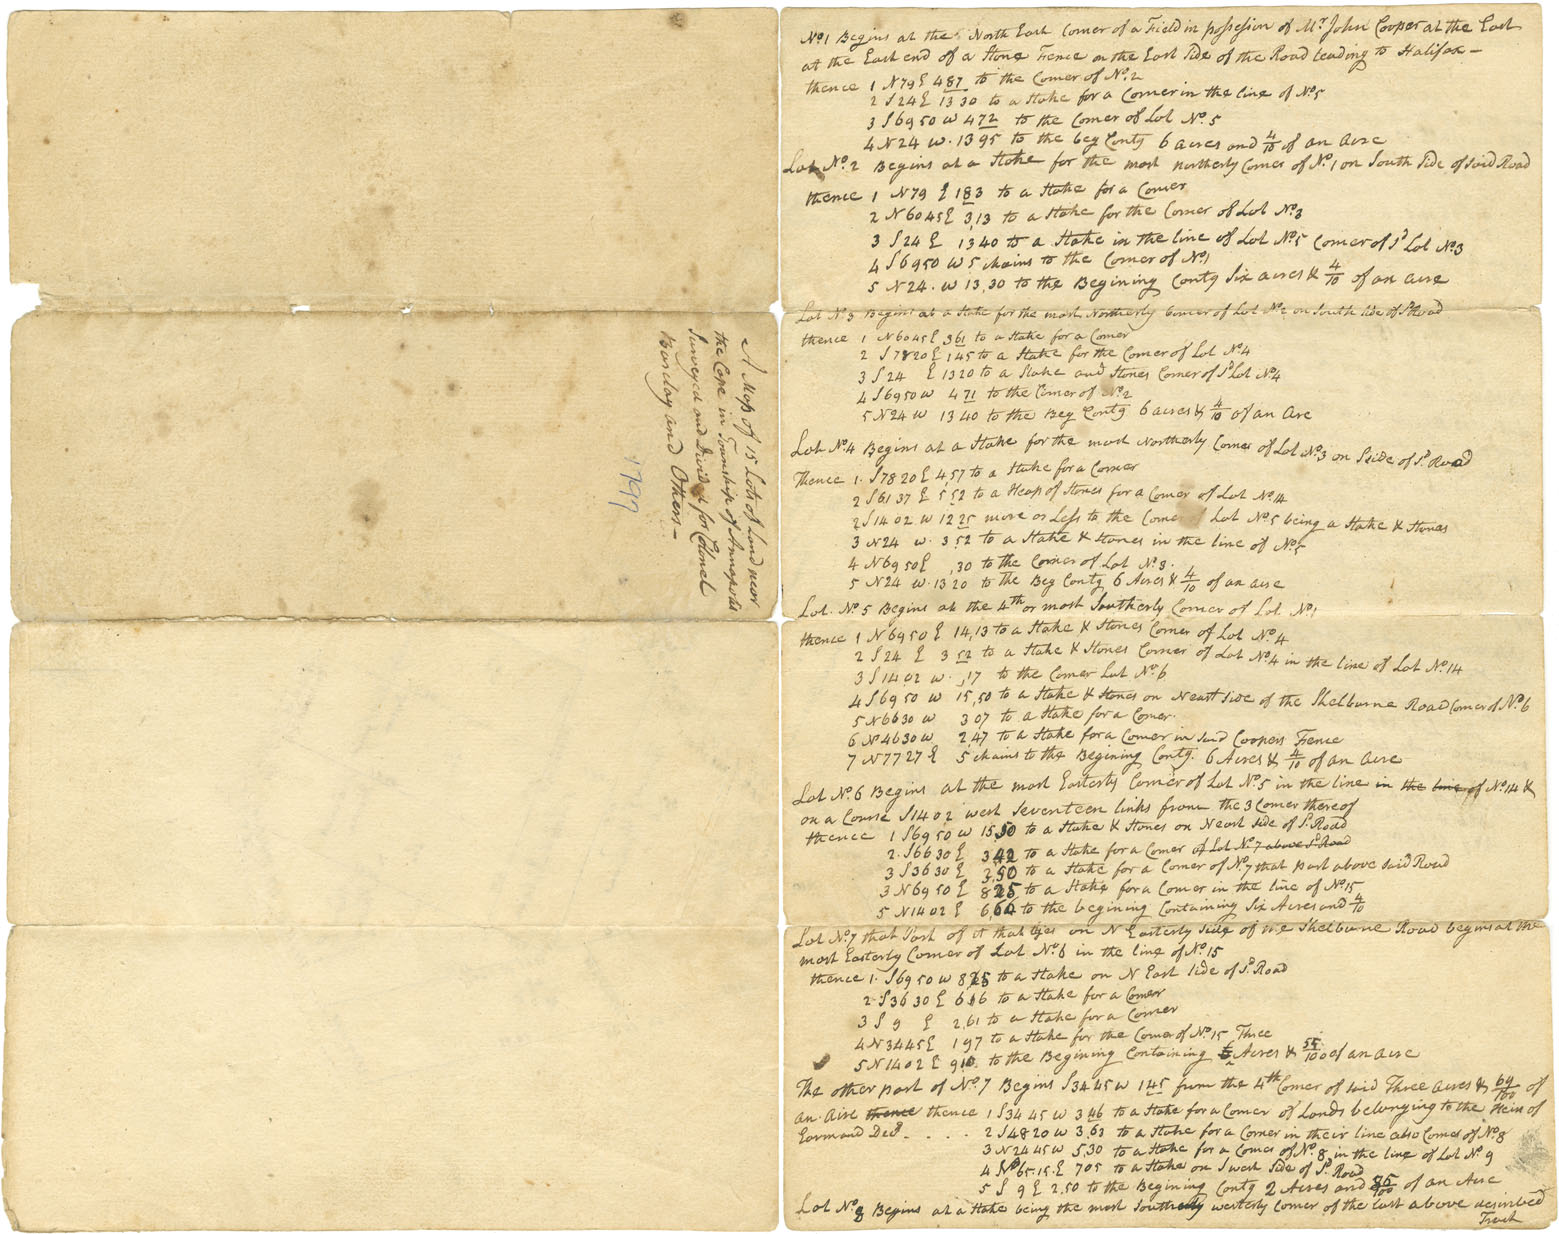 A Map of 15 Lots of Land near
the Cape in Township of Annapolis
Surveyed and Divided for Colonel
Barclay and Others –
1797
No. 1 Begins at the North East Corner of a Field in possession of Mr. John Cooper at the East
at the East end of a Stone Fence on the East Side of the Road leading to Halifax –
thence 1 N79E 4 87 to the Corner of No. 2
2 S24E 13 30 to a Stake for a Corner in the line of No. 5
3 S69 50 W 4 72 to the Corner of Lot No. 5
4 N24 W. 13 95 to the beg Contg 6 acres and 4/10 of an Acre
Lot No. 2 Begins at a Stake for the most northerly Corner of No. 1 on South Side of said Road
thence 1 N79 E 1 83 to a Stake for a Corner
2 N60 45 E 3,13 to a Stake for the Corner of Lot No. 3
3 S24 E 13 40 to a Stake in the line of Lot No. 5 Corner of Sd Lot No. 3
4 S69 50 W 5 chains to the Corner of No. 1
5 N24. W 13,30 to the Begining Contg Six acres & 4/10 of an acre
Lot No. 3 Begins at a Stake for the most Northerly Corner of Lot No. 2 on South Side of Sd Road
thence 1 N60 45 E 3 61 to a Stake for a Corner
2 S78 20 E 1 45 to a Stake for the Corner of Lot No. 4
3 S24 E 13 20 to a Stake and Stones Corner of Sd Lot No. 4
4 S69 50 W 4 71 to the Corner of No. 2
5 N24 W 13 40 to the Beg Contg 6 acres & 4/10 of an Acre
Lot No. 4 Begins at a Stake for the most Northerly Corner of Lot No. 3 on S side of Sd Road
Thence 1. S78 20 E 4,57 to a Stake for a Corner
2 S61 37 E 5 52 to a Heap of Stones for a Corner of Lot No. 14
2 S14 02 W 12 25 more or Less to the Corner Lot No. 5 being a Stake & Stones
3 N24 W. 3 52 to a Stake & Stones in the line of No. 5
4 N69 50 E ,30 to the Corner of Lot No. 3.
5 N24 W. 13 20 to the Beg Contg 6 Acres & 4/10 of an acre
Lot. No. 5 Begins at the 4th or most Southerly Corner of Lot No. 1
thence 1 N69 50 E 14,13 to a Stake & Stones Corner of Lot No. 4
2 S24 E 3 52 to a Stake & Stones Corner of Lot No. 4 in the line of Lot No. 14
3 S14 02 W. ,17 to the Corner Lot No. 6
4 S69 50 W 15,50 to a Stake & Stones on N east Side of the Shelburne Road Corner of No. 6
5 N66 30 W 3 07 to a Stake for a Corner.
6 N46 30 W 2,47 to a Stake for a Corner in said Coopers Fence
7 N77 27 E 5 chains to the Begining Contg. 6 Acres & 4/10 of an Acre
Lot No. 6 Begins at the most Easterly Corner of Lot No. 5 in the line in the line of No. 14 &
on a Course S14 02 west Seventeen links from the 3 Corner thereof
thence 1 S69 50 W 15 50 to a Stake & Stones on N east side of Sd Road
2. S66 30 E 3 42 to a Stake for a Corner of Lot No. 7 above Sd Road
3 S36 30 E 3,50 to a Stake for a Corner of No. 7 that part above said Road
3 N69 50 E 8 25 to a Stake for a Corner in the line of No. 15
5 N14 02 E 6,64 to the begining Containing Six Acres and 4/10
Lot No. 7 that Part of it that lyes on N Easterly side of the Shelburne Road begins at the
most Easterly Corner of Lot No. 6 in the line of No. 15
thence 1. S69 50 W 8 25 to a Stake on N East Side of Sd Road
2. S36 30 E 6 16 to a Stake for a Corner
3 S 9 E 2,61 to a Stake for a Corner
4 N34 45 E 1 97 to a Stake for the Corner of No. 15 Three
5 N14 02 E 9 10 to the Begining Containing Acres & 55/100 of an acre
The other part of No. 7 Begins S34 45 W 1 45 from the 4th Corner of said Three Acres & 69/100 of
an Acre thence thence 1 S34 45 W 3 46 to a Stake for a Corner of Lands belonging to the Heirs of
Decd. . . . . 2 S48 20 W 3,63 to a Stake for a Corner in their line also Corner of No. 8
3 N24 45 W 5,30 to a Stake for a Corner of No. 8 in the line of Lot No. 9
4 N65. 15. E 7 05 to a Stake on S west Side of Sd Road
5 S 9 E 2,50 to the Begining Contg 2 Acres and 85/100 of an Acre
Lot No. 8 Begins at a Stake being the most Southerly westerly Corner of the last above described
Tract